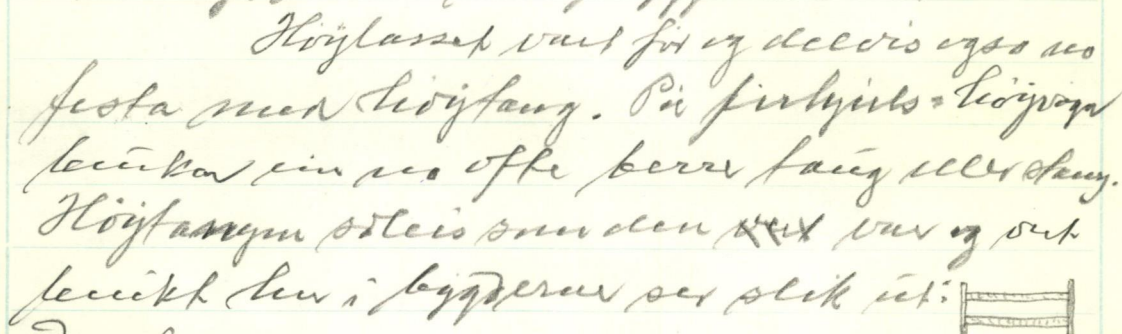 Höylasset vart før og delvis også no
festa med höytaug. På firhjuls=höyvogn
brukar ein no ofte berre taug eller stang.
Höytaugen såleis som den var og vert
brukt her i bygderne ser slik ut: